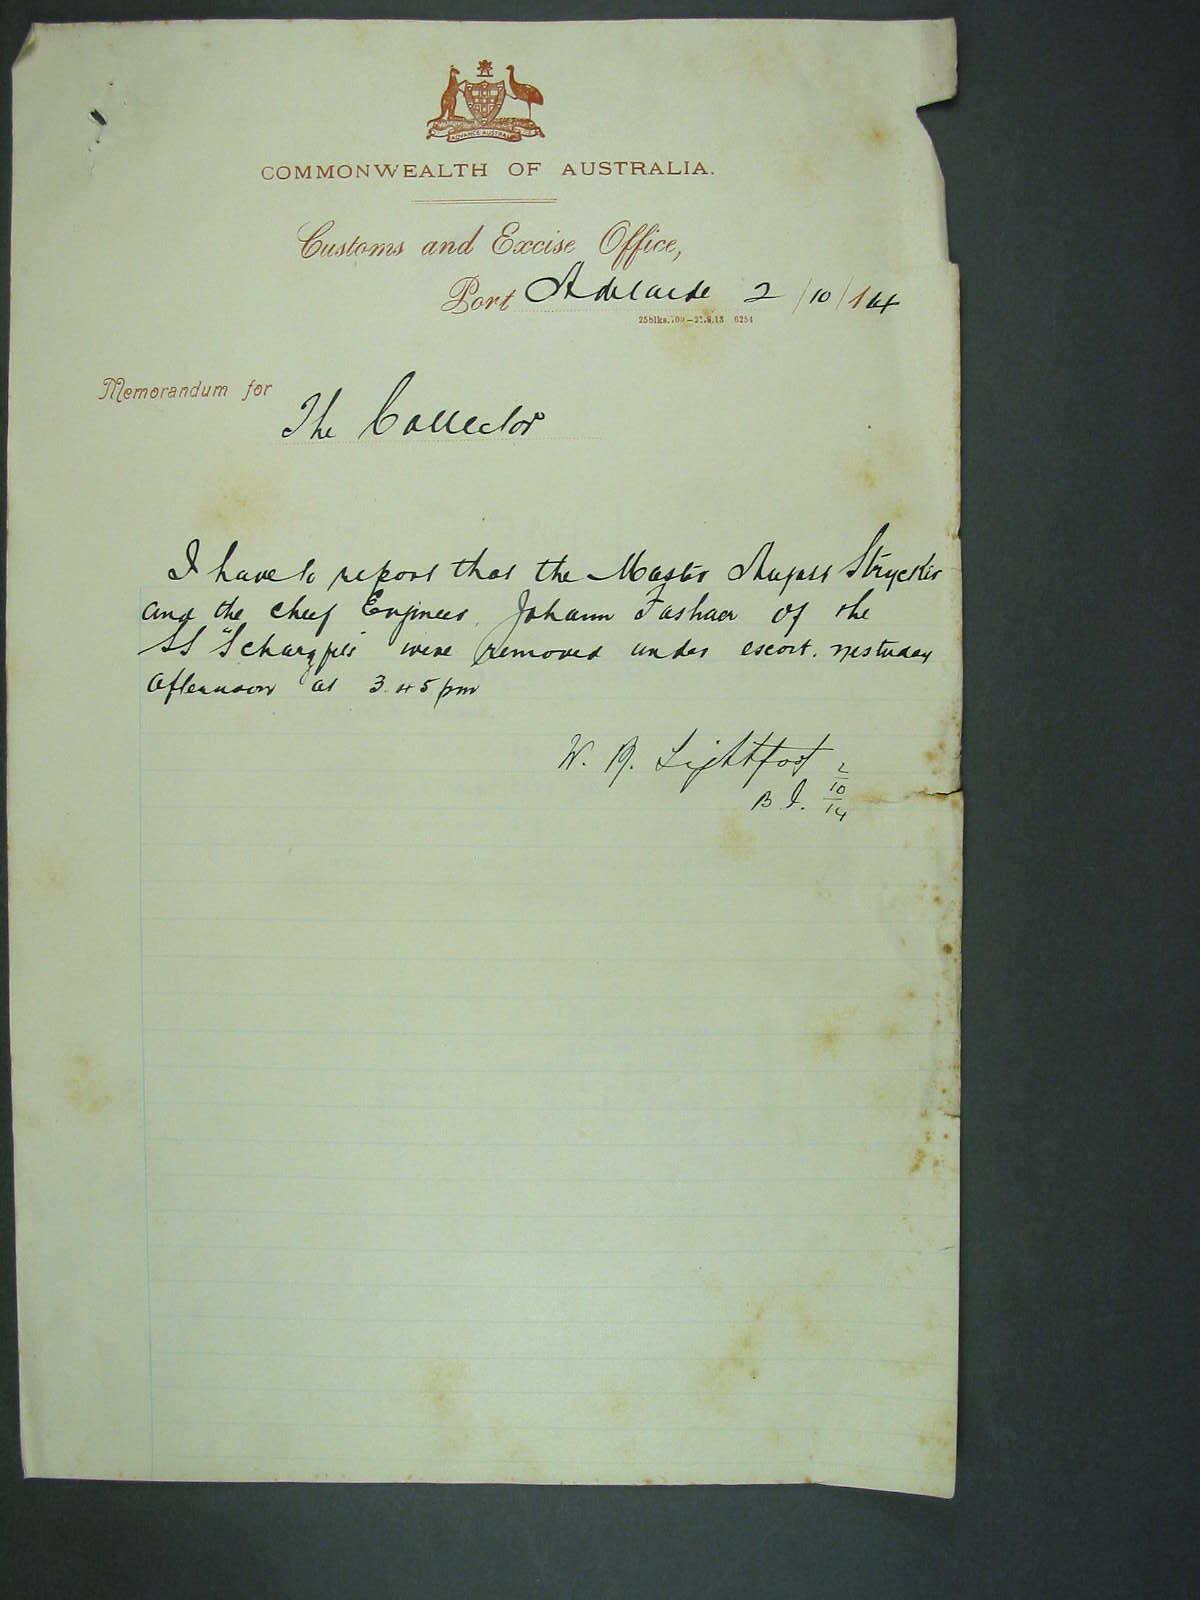 ADVANCE AUSTRALIA
COMMONWEALTH OF AUSTRALIA.
Customs and Excise Office,
Port Adelaide 2/10/14
Memorandum for
The Collector
I have to report that the Master August Strycker
and the chief Engineer Johann of the
SS "Scharzfels" were removed under escort. yesterday
afternoon at 3.45 pm
W. Lightfoot 2/10/14
B. I.